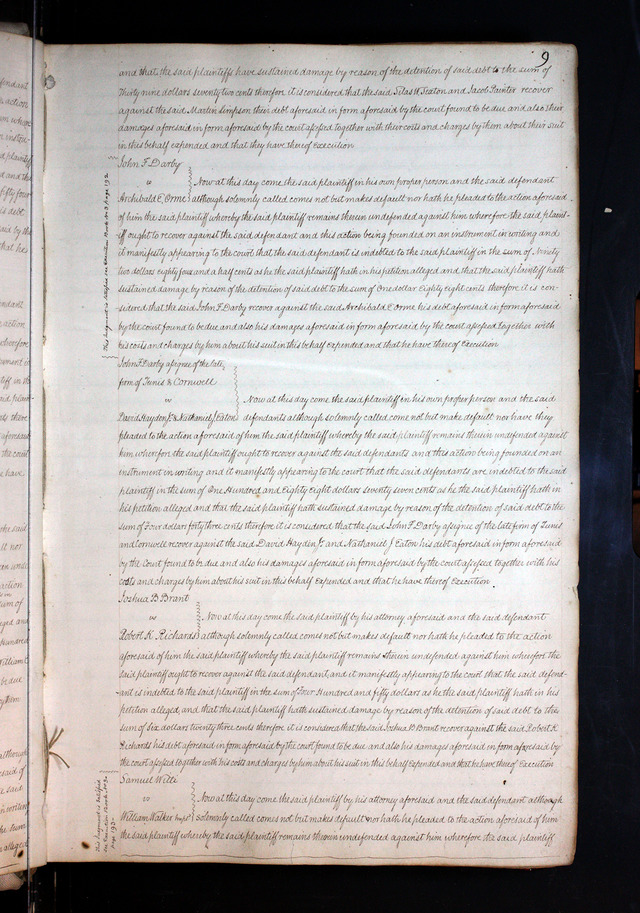 9
and that the said plaintiffs have sustained damage by reason of the detention of said debt to the sum of
Thirty nine dollars seventy two cents therefore it is considered that the said Silas W. Sexton and Jacob Painter recover
against the said Martin Simpson their debt aforesaid in form aforesaid by the court found to be due and also their
damages aforesaid in form aforesaid by the court assessed together with their costs and charges by them about their suit
in this behalf expended and that they have thereof Execution
John F. Darby
vs
Now at this day come the said plaintiff in his own proper person and the said defendant
Archibald E. Orme although solemnly called comes not but makes default nor hath he pleaded to the action aforesaid
of him the said plaintiff whereby the said plaintiff remains therein undefended against him wherefore the said plain-
tiff ought to recover against the said defendant and this action being founded on an instrument in writing and
it manifestly appearing to the court that the said defendant is indebted to the said plaintiff in the sum of Ninety
two dollars eighty four and a half cents as he the said plaintiff hath in his petition alleged and that the said plaintiff hath
sustained damage by reason of the detention of said debt to the sum of One dollar Eighty eight cents therefore it is con-
sidered that the said John F. Darby recover against the said Archibald E. Orme his debt aforesaid in form aforesaid
by the court found to be due and also his damages aforesaid in form aforesaid by the court assessed together with
his costs and charges by him about his suit in this behalf Expended and that he have thereof Execution
This judgment is satisfied see Execution Book No 3 page 192
John F. Darby assignee of the late
firm of Tunis & Cornwell
vs
Now at this day come the said plaintiff in his own proper person and the said
David Hayden Jr & Nathaniel J. Eaton defendants although solemnly called come not but make default nor have they
pleaded to the action aforesaid of him the said plaintiff whereby the said plaintiff remains therein undefended against
him wherefore the said plaintiff ought to recover against the said defendants and this action being founded on an
instrument in writing and it manifestly appearing to the court that the said defendants are indebted to the said
plaintiff in the sum of One Hundred and Eighty Eight dollars seventy seven cents as he the said plaintiff hath in
his petition alleged and that the said plaintiff hath sustained damage by reason of the detention of said debt to the
sum of Four dollars forty three cents therefore it is considered that the said John F. Darby assignee of the late firm of Tunis
and Cornwell recover against the said David Hayden Jr and Nathaniel J Eaton his debt aforesaid in form aforesaid
by the Court found to be due and also his damages aforesaid in form aforesaid by the court assessed together with his
costs and charges by him about his suit in this behalf Expended and that he have thereof Execution
Joshua B. Brant
vs
Now at this day come the said plaintiff by his attorney aforesaid and the said defendant
Robert K. Richards although solemnly called comes not but makes default nor hath he pleaded to the action
aforesaid of him the said plaintiff whereby the said plaintiff remains therein undefended against him wherefore the
said plaintiff ought to recover against the said defendant, and it manifestly appearing to the court that the said defend-
ant is indebted to the said plaintiff in the sum of Four Hundred and fifty dollars as he the said plaintiff hath in his
petition alleged, and that the said plaintiff hath sustained damage by reason of the detention of said debt to the
sum of Six dollars twenty three cents therefore it is considered that the said Joshua B. Brant recover against the said Robert K.
Richards his debt aforesaid in form aforesaid by the court found to be due and also his damages aforesaid in form aforesaid by
the court assessed together with his costs and charges by him about his suit in this behalf Expended and that he have thereof Execution
Samuel Willi
vs
Now at this day come the said plaintiff by his attorney aforesaid and the said defendant although
William Walker solemnly called comes not but makes default nor hath he pleaded to the action aforesaid of him
the said plaintiff whereby the said plaintiff remains therein undefended against him wherefore the said plaintiff
This judgment is satisfied
see Execution Book No 3
page 192